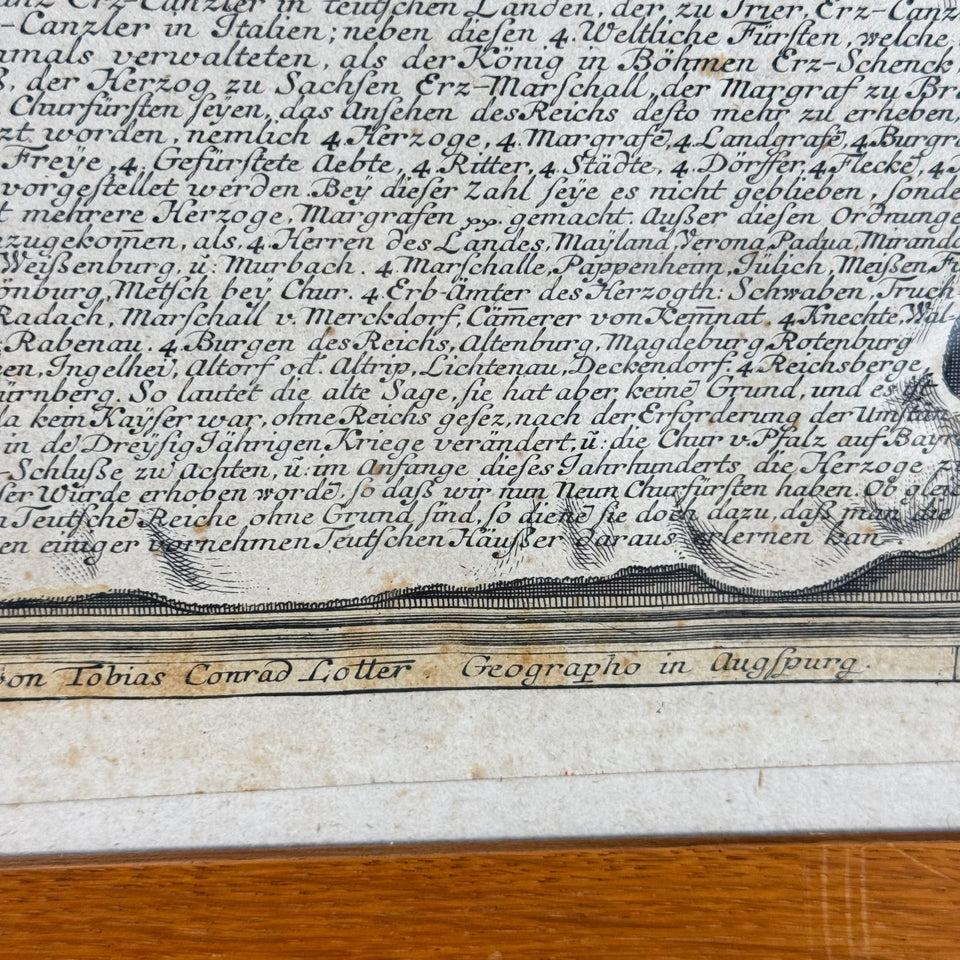 Erz-Canzler in teutſchen Landen, der zu Trier, Erz-Canz
-Canzler in Italien; neben dieſen 4. Weltliche Fürſten, welche
mals verwalteten, als der König in Böhmen Erz-Schenck,
der Herzog zu Sachſen Erz-Marſchall, der Margraf zu Br
Churfürſten ſeyen, das Anſehen des Reichs deſto mehr zu erheben,
zt worden, nemlich 4. Herzoge, 4. Margrafē, 4. Landgrafē, 4. Burgra
Freÿe, 4. Gefürſtete Aebte, 4. Ritter, 4. Städte, 4. Dörffer, 4. Fleckē, 4.
vorgeſtellet werden. Bey dieſer Zahl ſeye es nicht geblieben, ſonde
t mehrere Herzoge, Margrafen pp. gemacht. Außer dieſen Ordnunge
zugekom̄en, als, 4. Herren des Landes, Maÿland, Verona, Padua, Mirand
Weißenburg, ū: Murbach. 4. Marſchalle, Pappenheim, Jülich, Meißen, Fi
önburg, Metſch bey Chur. 4. Erb-Ämter des Herzogth: Schwaben, Truch
Radach, Marſchall v. Merckdorf, Cäm̄erer von Kem̄nat, 4. Knechte, Wal-
Rabenau. 4. Burgen des Reichs, Altenburg, Magdeburg, Rotenburg
en, Ingelhei, Altorf od. Altrip, Lichtenau, Deckendorf. 4. Reichsberge
ürnberg. So lautet die alte Sage, ſie hat aber keinē Grund, und es iſt
da kein Kaÿſer war, ohne Reichs geſez, nach der Erforderung der Umſtän
in dē Dreÿſig Jährigen Kriege verändert, ū: die Chur v. Pfalz auf Bayr
-Schluße zū Achten, ū: im Anfange dieſes Jahrhunderts, die Herzoge z
ſer Würde erhoben wordē, ſo daß wir nun Neun Churfürſten haben. Ob glei
Teutſchē Reiche, ohne Grund ſind, ſo dienē ſie doch dazu, daß man die
en einiger vornehmen Teutſchen Häußer daraus erlernen kan
von Tobias Conrad Lotter. Geographo in Augſpurg.